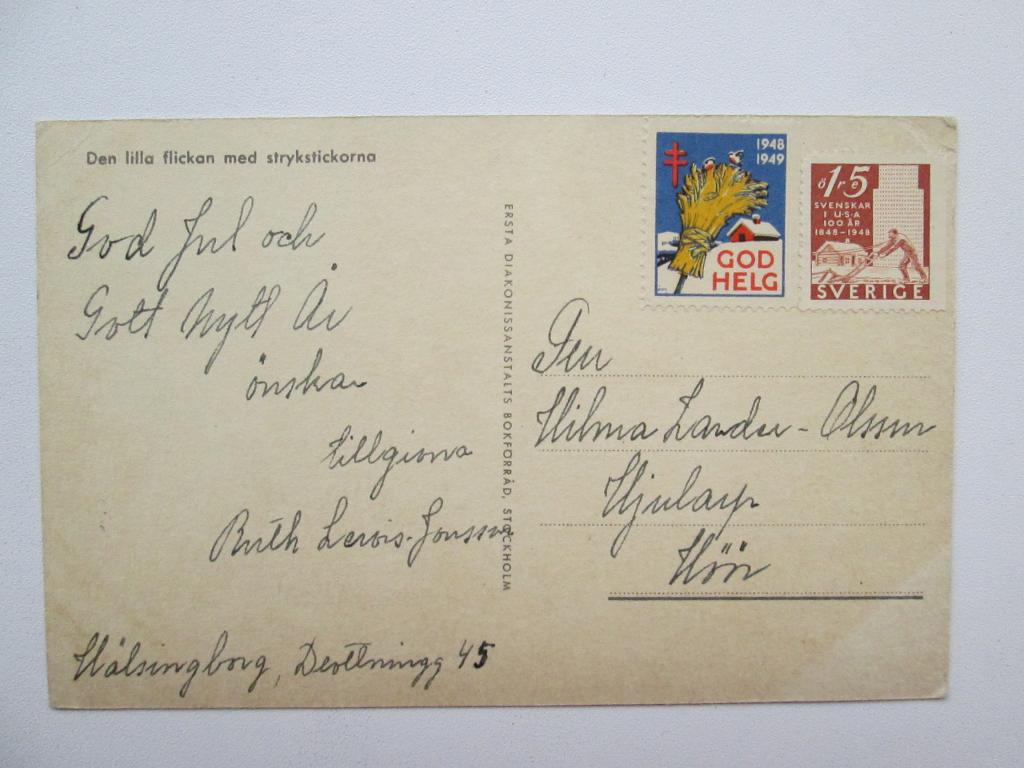 Den lilla flickan med strykstickorna
God Jul och
Gott Nytt År
önskar
tillgivna
Ruth Lewis-Jonsson
Hälsingborg, Drottningg 45
ERSTA DIAKONISSANSTALTS BOKFÖRRÅD, STOCKHOLM
1948
1949
GOD
HELG
15
öre
SVENSKAR
I U·S·A
100 ÅR
1848-1948
SVERIGE
Fru
Hilma Lander-Olsson
Höör